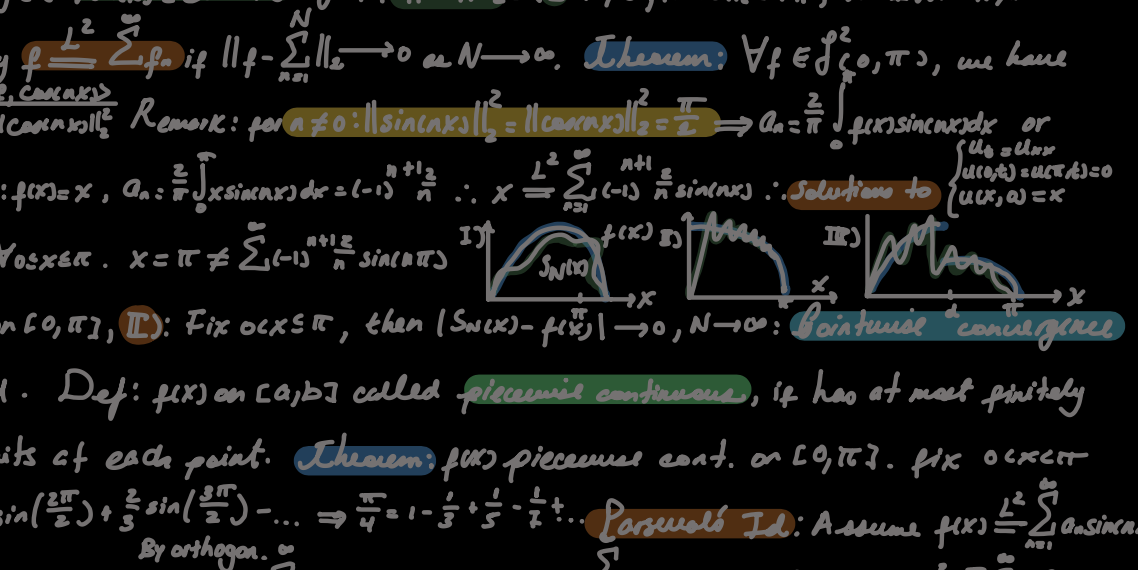 f =^{L^2} Σ^∞ f_n if ||f - Σ_{n=1}^N ||_2 → 0 as N → ∞. Theorem: ∀f ∈ L^2(0,π), we have
cos(nx)> / |cos(nx)||_2^2 Remark: for n ≠ 0: ||sin(nx)||_2^2 = ||cos(nx)||_2^2 = π/2 ⟹ a_n = 2/π ∫_0^π f(x)sin(nx)dx or
: f(x) = x, a_n = 2/π ∫_0^π x sin(nx)dx = (-1)^{n+1} 2/n ∴ x =^{L^2} Σ_{n=1}^∞ (-1)^{n+1} 2/n sin(nx) ∴ solutions to { u_t = u_xx
u(0,t) = u(π,t) = 0
u(x,0) = x
∀ 0≤x≤π. x = π ≠ Σ (-1)^{n+1} 2/n sin(nπ)
I) f(x) S_N(x) π x
II) π x
III) d π x
on [0,π], II): Fix 0<x≤π, then |S_N(x) - f(x)| → 0, N → ∞: Pointwise convergence
. Def: f(x) on [a,b] called piecewise continuous, if has at most finitely
its at each point. Theorem: f(x) piecewise cont. on [0,π]. fix 0<x<π
in(2π/2) + 2/3 sin(3π/2) - ... ⟹ π/4 = 1 - 1/3 + 1/5 - 1/7 + ... Parseval's Id: Assume f(x) =^{L^2} Σ_{n=1}^∞ a_n sin(nx
By orthogon. ∞